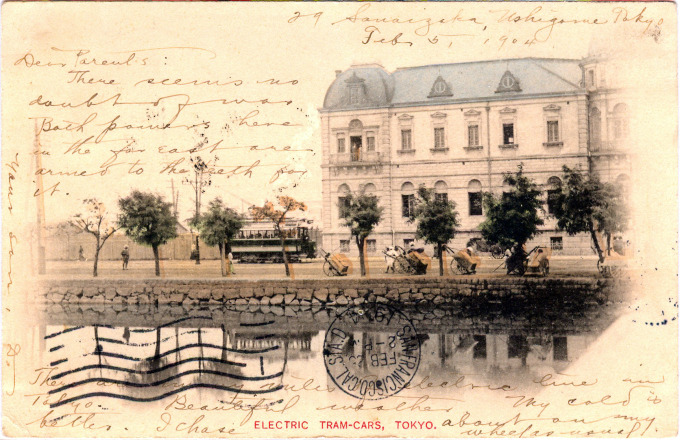 29 Sanaizaka, Ushigome Tokyo
Feb 5, 1904
Dear Parents:
There seems no
doubt of war
Both powers here
in the far east are
armed to the teeth for
it.
They are electric line in
Tokyo. Beautiful weather My cold is
better. I chase about on my
wheel as usual.
Your Son,
SAN FRANCISCO, CAL.
FEB 23
ELECTRIC TRAM-CARS, TOKYO.